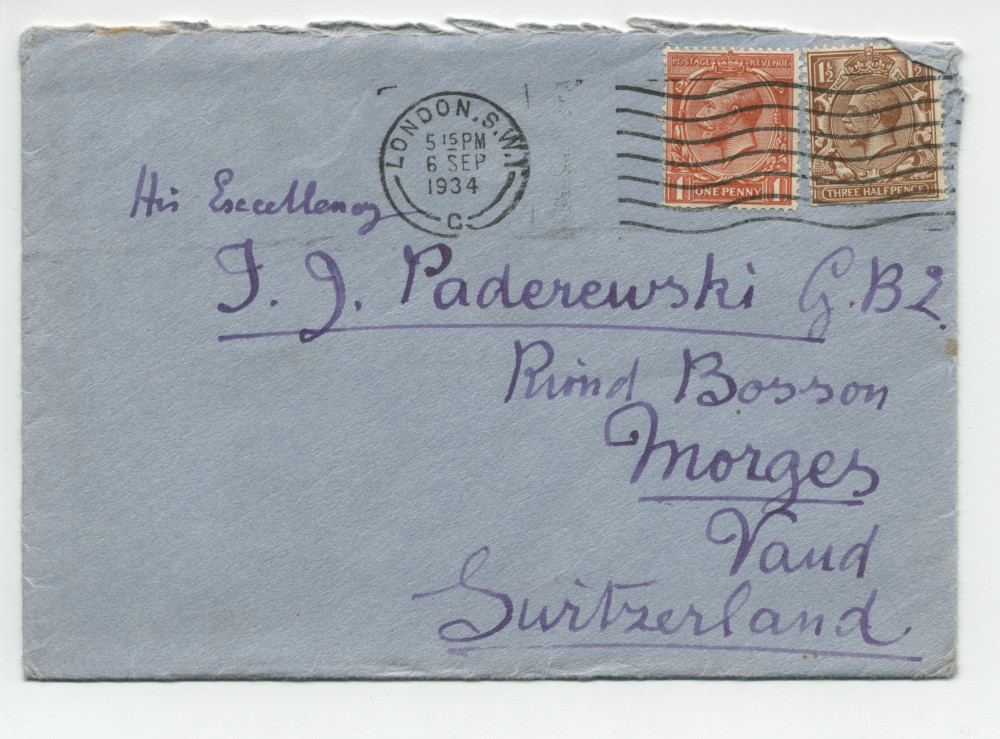 POSTAGE REVENUE
1 ONE PENNY 1
1½ ½
THREE HALFPENCE
LONDON. S.W.1.
5 15 PM
6 SEP
1934
C
His Excellency
I. J. Paderewski G.B.E.
Riond Bosson
Morges
Vaud
Switzerland